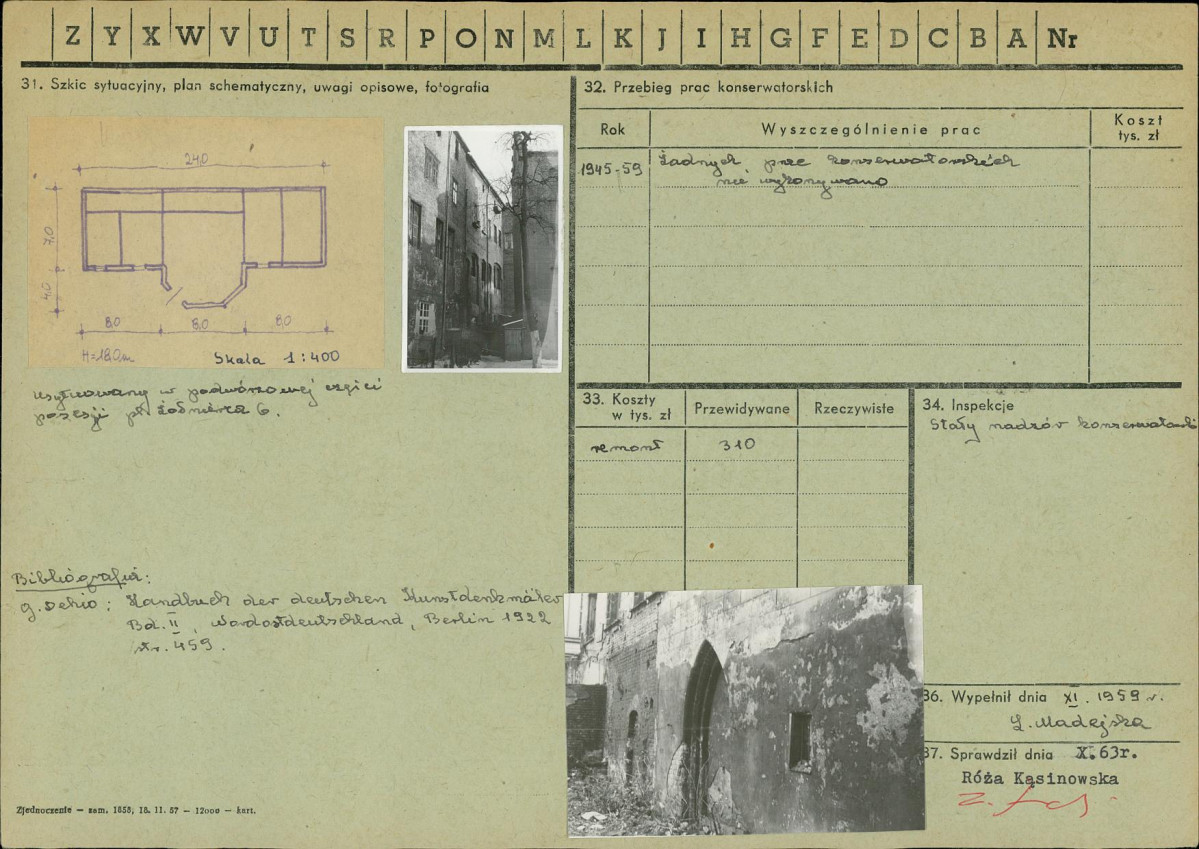 Z Y X W V U T S R P O N M L K J I H G F E D C B A Nr
31. Szkic sytuacyjny, plan schematyczny, uwagi opisowe, fotografia
24,0
7,0
4,0
8,0 8,0 8,0
H=18,0m
Skala 1:400
usytuowany w podwórzowej części
posesji pl. Żołnierza 6.
Bibliografia:
G. Dehio; Handbuch der deutschen Kunstdenkmäler
Bd. II, Nordostdeutschland, Berlin 1922
str. 459.
Zjednoczenie – zam. 1858, 18. 11. 57 – 12000 – kart.
32. Przebieg prac konserwatorskich
Rok
Wyszczególnienie prac
Koszt
tys. zł
1945-59
Żadnych prac konserwatorskich
nie wykonywano
33. Koszty
w tys. zł
Przewidywane
Rzeczywiste
remont
310
34. Inspekcje
Stały nadzór konserwatorski
36. Wypełnił dnia XI. 1959 r.
Ł. Madejska
37. Sprawdził dnia X. 63r.
Róża Kąsinowska